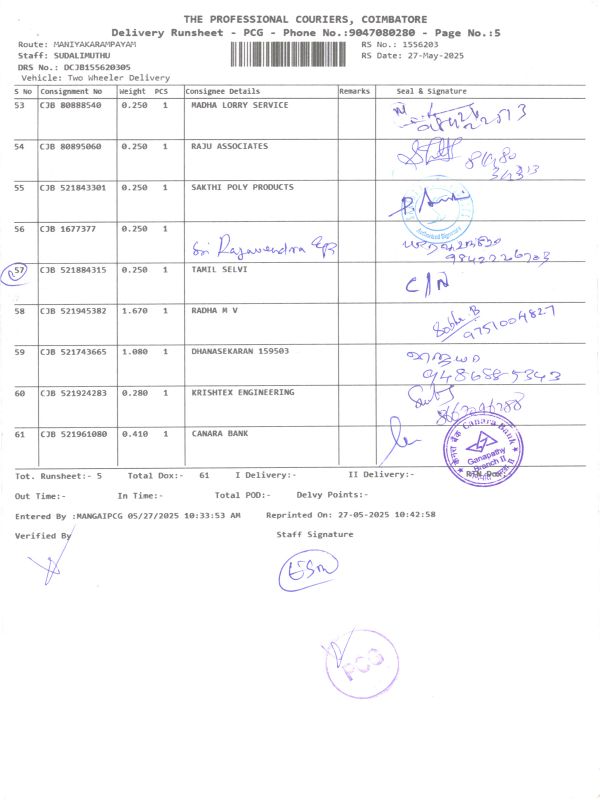 THE PROFESSIONAL COURIERS, COIMBATORE
Delivery Runsheet - PCG - Phone No.:9047080280 - Page No.:5
Route: MANIYAKARAMPAYAM RS No.: 1556203
Staff: SUDALIMUTHU RS Date: 27-May-2025
DRS No.: DCJB155620305
Vehicle: Two Wheeler Delivery
S No Consignment No Weight PCS Consignee Details Remarks Seal & Signature
53 CJB 80888540 0.250 1 MADHA LORRY SERVICE
54 CJB 80895060 0.250 1 RAJU ASSOCIATES
55 CJB 521843301 0.250 1 SAKTHI POLY PRODUCTS
Authorised Signatory
56 CJB 1677377 0.250 1
Sri Rajarajendra
9842226703
57 CJB 521884315 0.250 1 TAMIL SELVI C/N
58 CJB 521945382 1.670 1 RADHA M V
9751004827
59 CJB 521743665 1.080 1 DHANASEKARAN 159503
9486585343
60 CJB 521924283 0.280 1 KRISHTEX ENGINEERING
61 CJB 521961080 0.410 1 CANARA BANK
केनरा बैंक Canara Bank
Ganapathy
Branch II
Tot. Runsheet:- 5 Total Dox:- 61 I Delivery:- II Delivery:-
Out Time:- In Time:- Total POD:- Delvy Points:-
Entered By :MANGAIPCG 05/27/2025 10:33:53 AM Reprinted On: 27-05-2025 10:42:58
Verified By Staff Signature
ESM
PCG